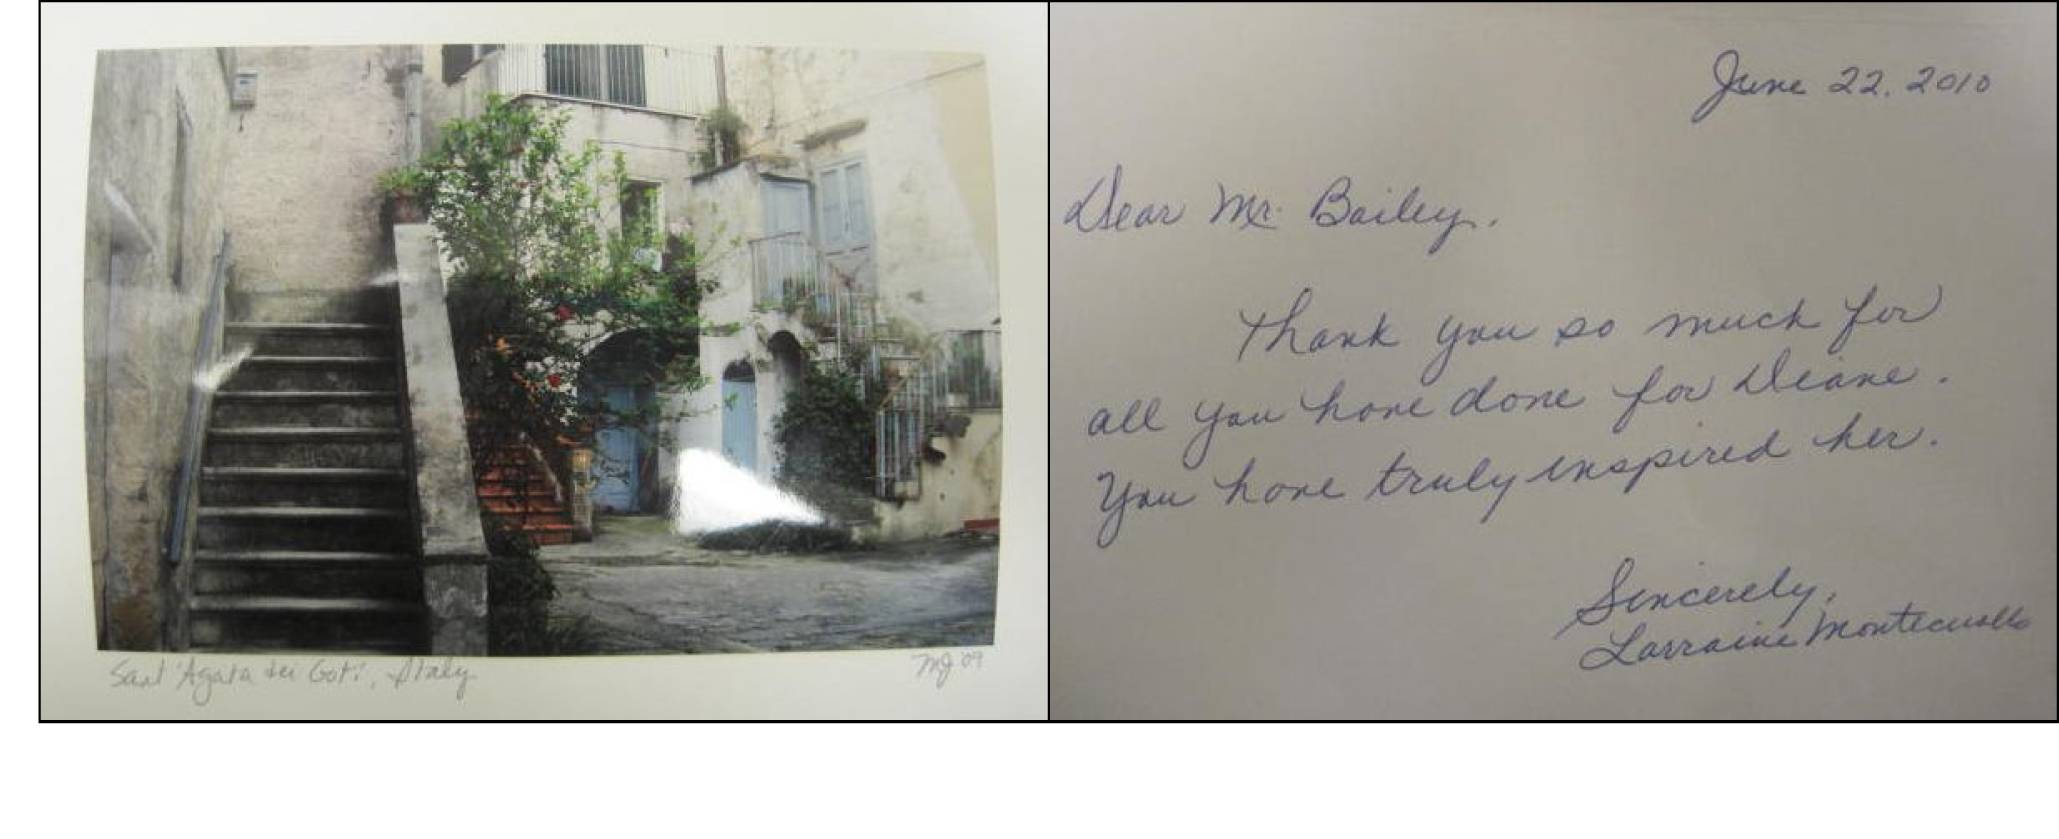 Sant 'Agata dei Goti, Italy
MJ '09
June 22, 2010
Dear Mr. Bailey,
Thank you so much for
all you have done for Diane.
You have truly inspired her.
Sincerely,
Larraine Montecuollo